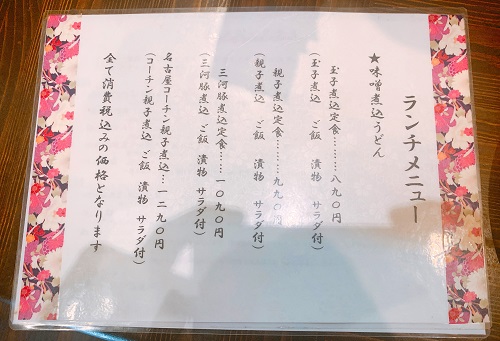 ランチメニュー
★味噌煮込うどん
玉子煮込定食……八九〇円
(玉子煮込　ご飯　漬物　サラダ付)
親子煮込定食……九九〇円
(親子煮込　ご飯　漬物　サラダ付)
三河豚煮込定食……一〇九〇円
(三河豚煮込　ご飯　漬物　サラダ付)
名古屋コーチン親子煮込…一二九〇円
(コーチン親子煮込　ご飯　漬物　サラダ付)
全て消費税込みの価格となります